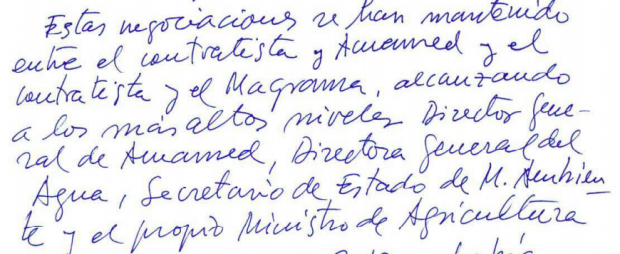 Estas negociaciones se han mantenido
entre el contratista y Acuamed y el
contratista y el Magrama, alcanzando
a los más altos niveles Director Gene-
ral de Acuamed, Directora General del
Agua, Secretario de Estado de M. Ambien-
te y el propio Ministro de Agricultura